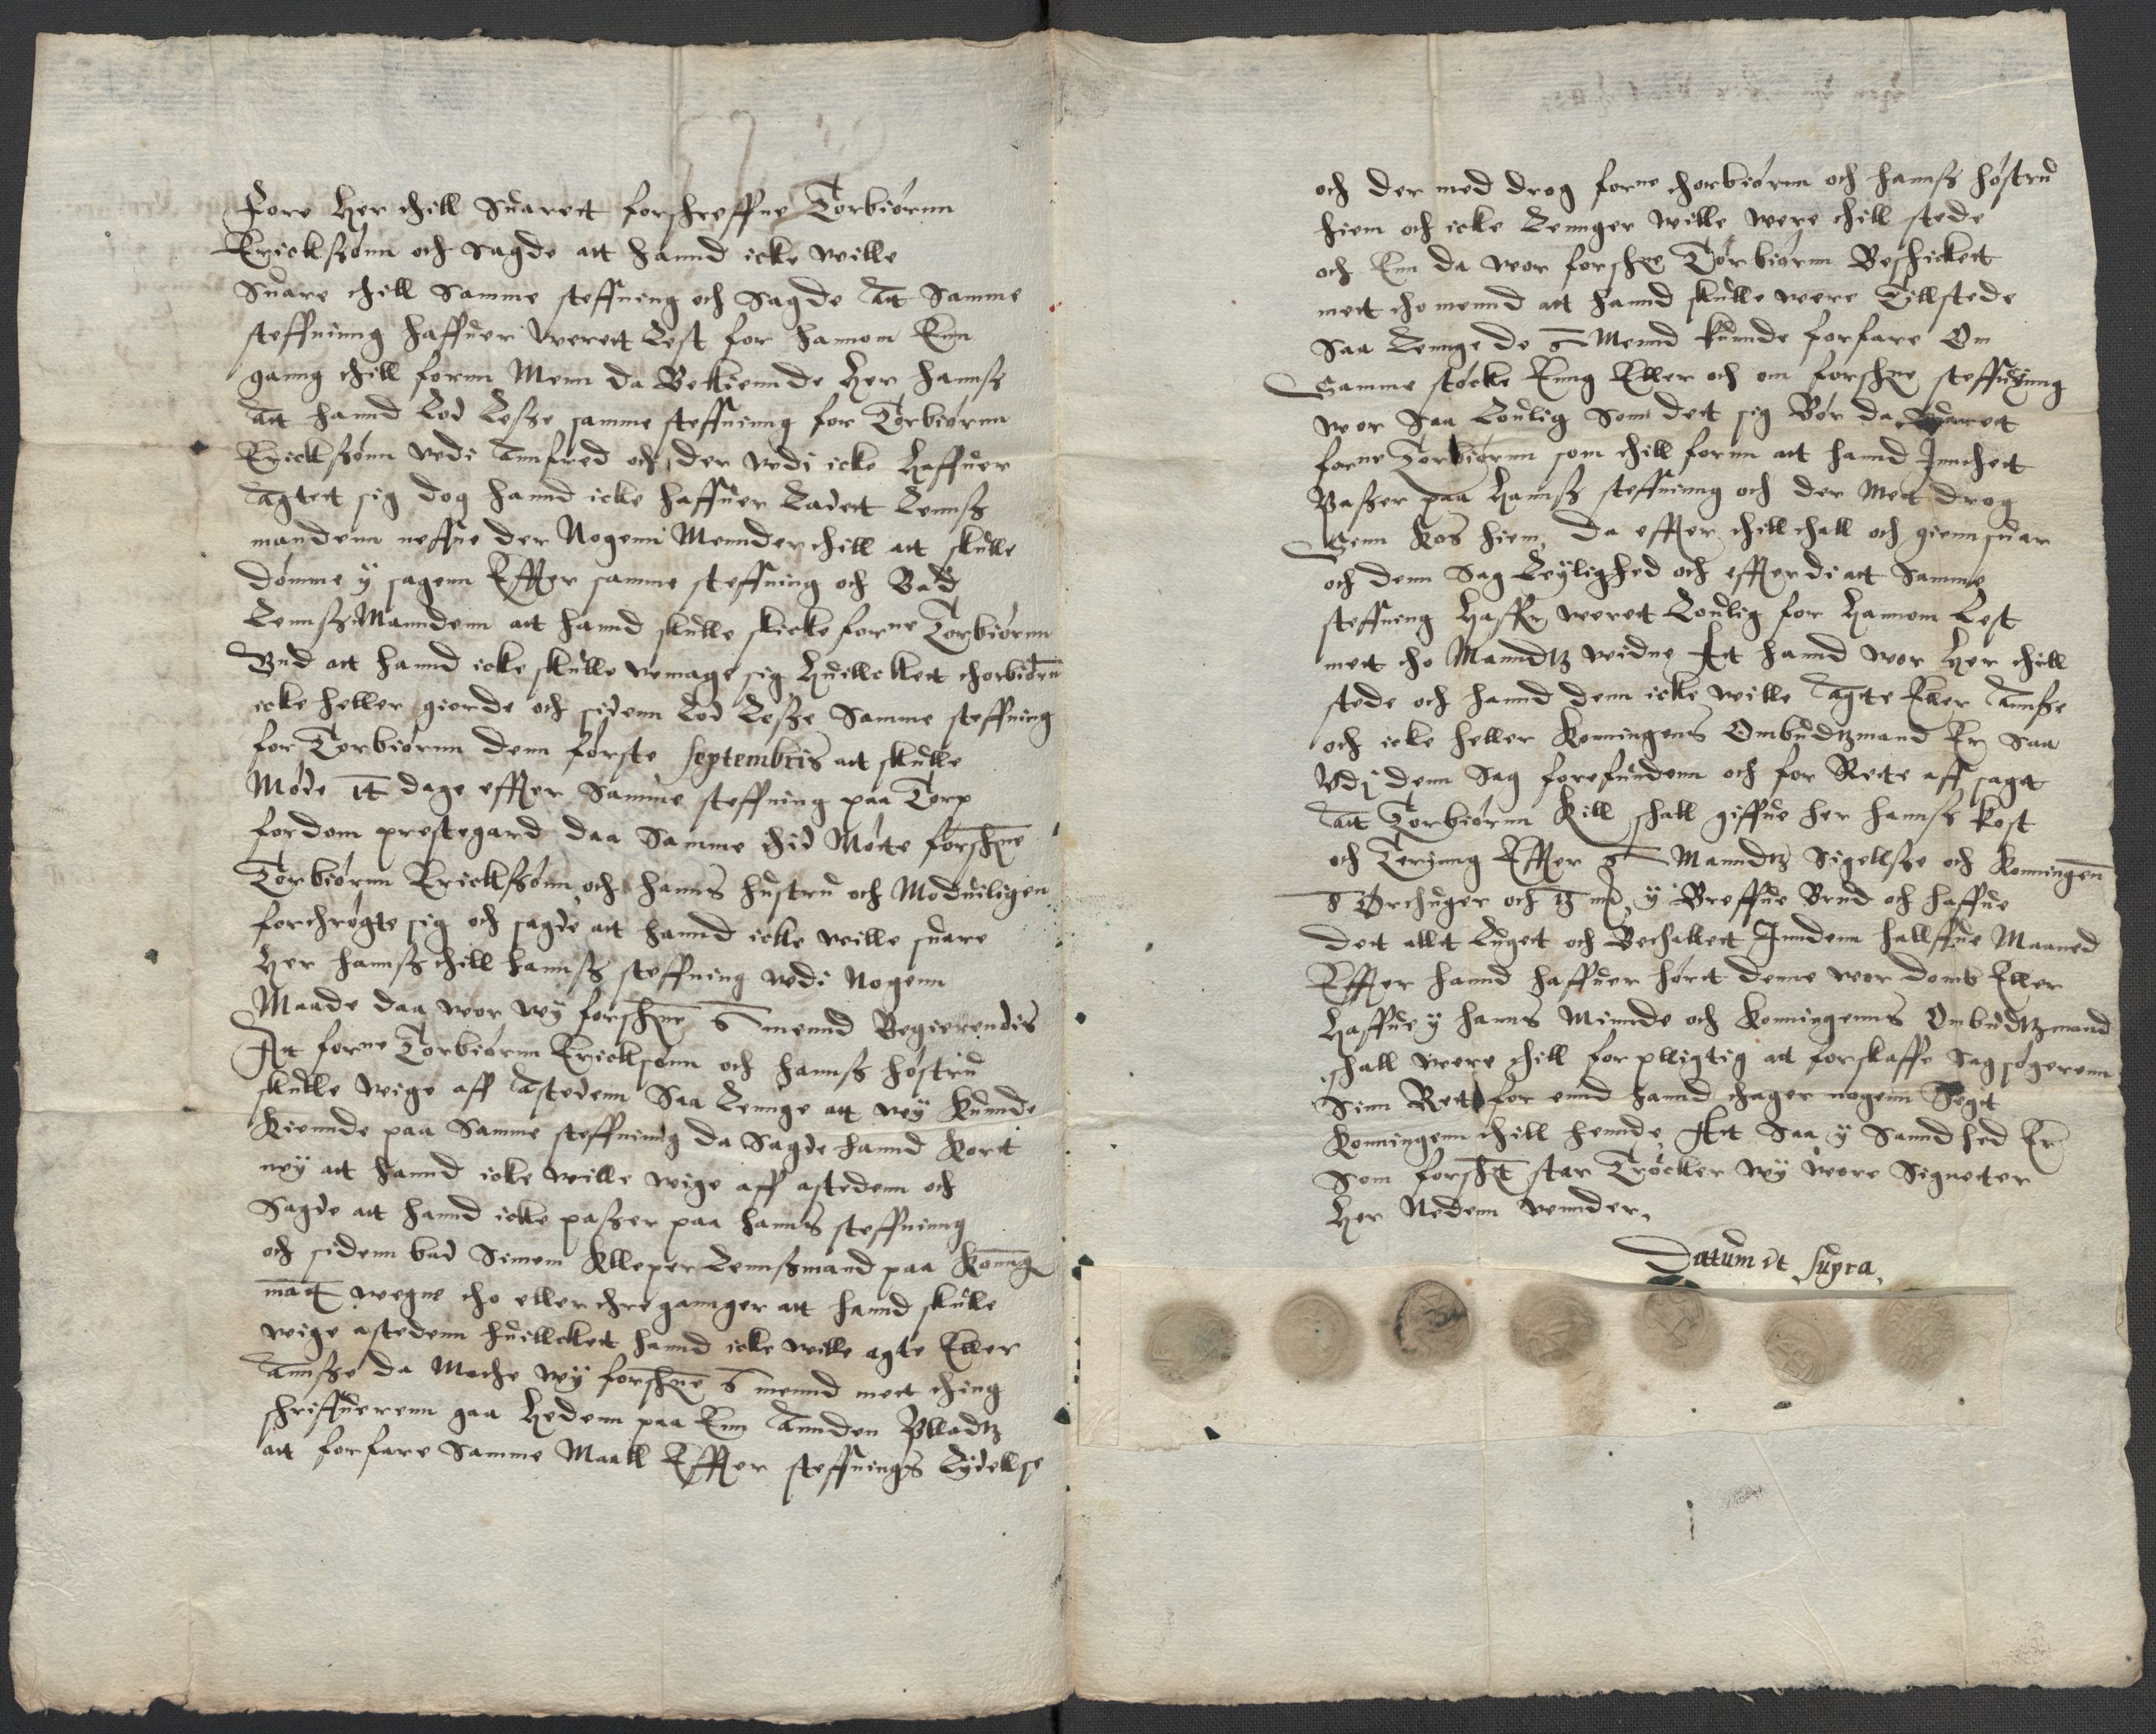 Fore Her thill Suarett forschreffne Torbiørnn
Erickszønn och Sagde att hannd icke wille
Suare thill Samme steffning och Sagde att Samme
steffninng haffuer werett Lest for hannom Enn
ganng thill fornn Menn da Bekiennde Her Hannsz
att hannd Lod Lesze samme steffninng for Torbiørnn
Erickszønn vdi annfred och der vdi icke Haffuer
agtett sig dog hannd icke haffuer Ladett Lennsz
mandenn neffne der Nogenn Mennder thill att skulle
dømme y sagenn Effter samme steffning och Bad
LennszManndenn att hannd skulle skicke forne Torbiørnn
Bud att hannd icke skulle vmage sig huillckett thorbiørnn
icke heller giorde och sidenn Lod Lesze Samme steffning
for Torbiørnn denn første Septembris att skulle
Møde 14 dage effter Samme steffning paa Torp
fordom prestegard daa Samme thid Møtte forschne
Torbiørnn Erickszønn och hanns hustru och Moduiligen
forthrøgte sig och sagde att hannd icke wille suare
Her hannsz thill hannsz steffning vdi Nogenn
Maade daa wor wy forschne 6 mennd Begierendis
Att forne Torbiørnn Ericksønn och hannsz høstru
skulle wige aff astedenn Saa Lennge att wy kunnde
kiennde paa Samme steffninng da Sagde hannd kortt
ney att hannd icke wille wige aff astedenn och
Sagde att hannd icke paszer paa hanns steffninng
och sidenn bad Simenn Klleper Lennszmand paa Konng
matt wegne tho eller thre gannger att hannd skulle
wige astedenn huillckett hannd icke wille agte Eller
annsze da Motte wy forschne 6 mennd mett thing
schriffuerenn gaa Hedenn paa Enn annden Plladtz
att forfare Samme Maall Effter steffnings Lydellse
och der med drog forne thorbiørnn och hannsz høstru
hiem och icke Lennger wille were thill stede
och Enn da wor forschne Torbiørnn Beschickett
mett tho mennd att hannd skulle were Tillstede
Saa Lennge de 6 Mennd kunnde forfare Om
Samme støcke Enng Eller och om forschne steffninng
wor Saa Loulig Som dett sig Bør da
forne Torbiørnn som thill fornn att hannd Inthett
Paszer paa Hannsz steffninng och der Mett drog
Senn Kos hiem, da effter thill thall och giennsuar
och denn Sag Leylighed och effterdi att Samme
steffning Haffr werett Loulig for Hannom Lest
mett tho Manndtz widne Att hannd wor Her thill
stede och hannd denn icke wille agte Eller annsze
och icke heller Konningens Ombudtzmand Er Saa
Vdj denn Sag forefundenn och for Rette aff sagt
att Torbiørnn Kill schall giffue her hannsz kost
och Teringg Effter 6 Manndtz Sigellsze och Konningenn
8 Ørthuger och 13 mrk y Breffue Brud och haffue
dett allt Luget och Bethallett Inndenn hallffue Maaned
Effter hannd haffuer hørtt denne wor domb Eller
Haffue y hanns Minnde och Konningenns Ombudtzmand
schall were thill forplligtig att forskaffe Sagsøgerenn
Sinn Rett for ennd hannd thager nogenn Segt
Konningenn thill hennde Att Saa y Sanndhed Er
Som forscht star Trøcker wy wore Signetter
Her Nedenn vnnder,
Dattum vt Supra,